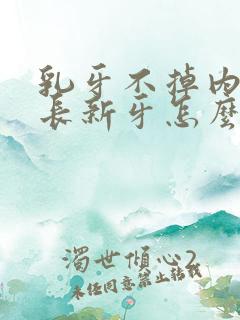 乳牙不掉内
長新牙怎麼
濁世傾心2
未经同意禁止转载